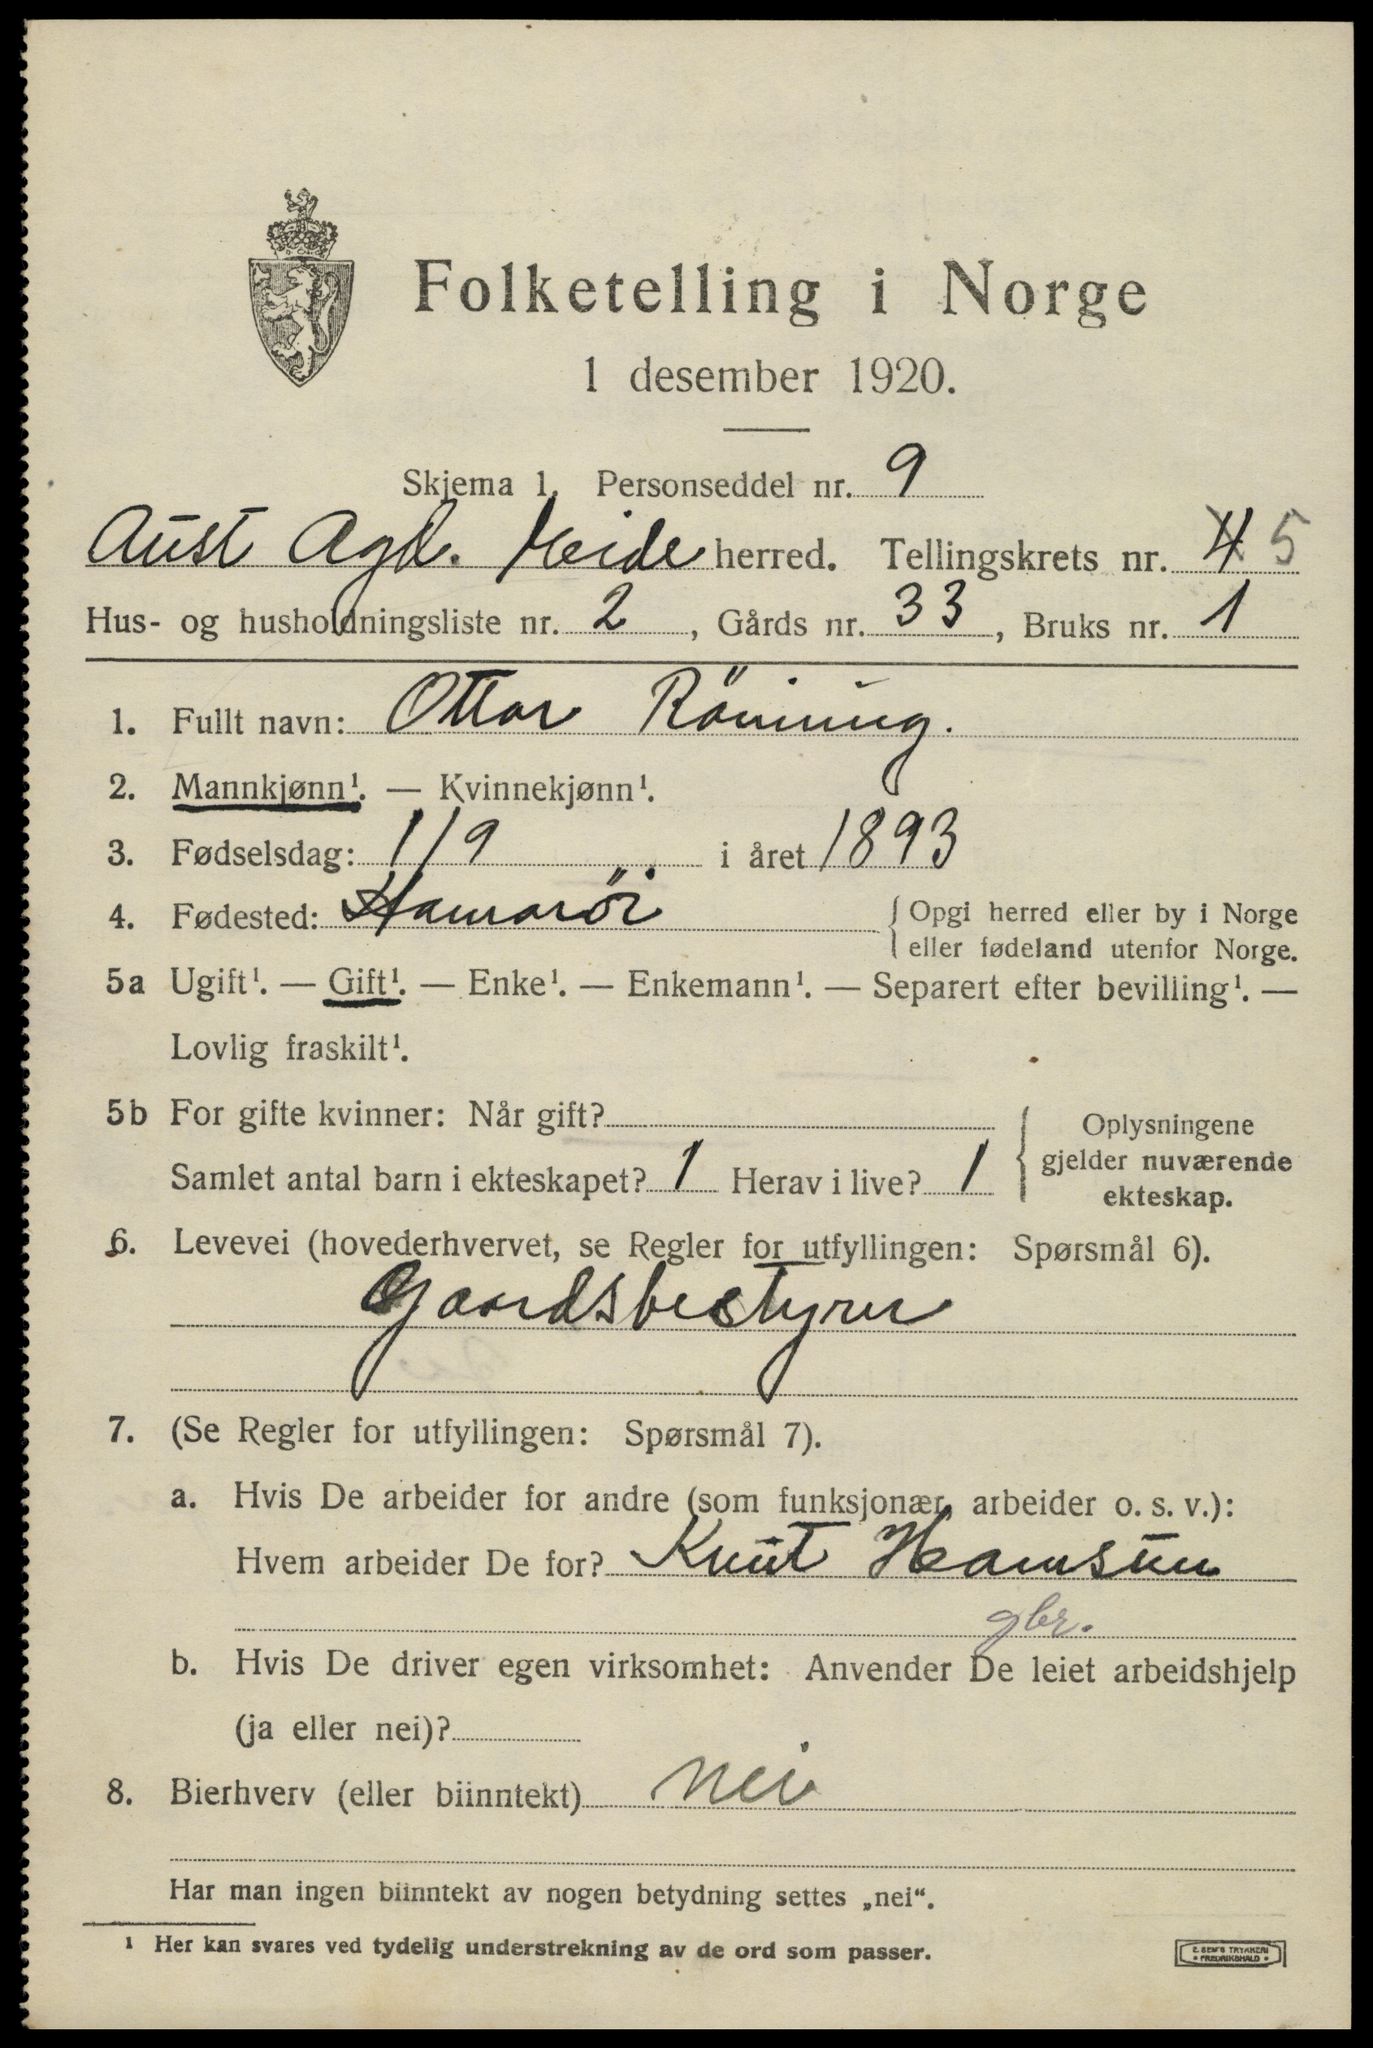 Folketelling i Norge
1 desember 1920.
Skjema 1. Personseddel nr. 9
Aust Agd. Heide herred. Tellingskrets nr. 4 5
Hus- og husholdningsliste nr. 2, Gårds nr. 33, Bruks nr. 1
1. Fullt navn: Ottar Röning.
2. Mannkjønn¹. — Kvinnekjønn¹.
3. Fødselsdag: 1/9 i året 1893
4. Fødested: Hamaröi { Opgi herred eller by i Norge
eller fødeland utenfor Norge.
5a Ugift¹. — Gift¹. — Enke¹. — Enkemann¹. — Separert efter bevilling¹. —
Lovlig fraskilt¹.
5b For gifte kvinner: Når gift?
Samlet antal barn i ekteskapet? 1 Herav i live? 1
{ Oplysningene
gjelder nuværende
ekteskap.
6. Levevei (hovederhvervet, se Regler for utfyllingen: Spørsmål 6).
Gaardsbestyrer
7. (Se Regler for utfyllingen: Spørsmål 7).
a. Hvis De arbeider for andre (som funksjonær, arbeider o. s. v.):
Hvem arbeider De for? Knut Hamsun
gbr.
b. Hvis De driver egen virksomhet: Anvender De leiet arbeidshjelp
(ja eller nei)?
8. Bierhverv (eller biinntekt) nei
Har man ingen biinntekt av nogen betydning settes „nei“.
¹ Her kan svares ved tydelig understrekning av de ord som passer.
E. SEM'S TRYKKERI
• FREDRIKSHALD •